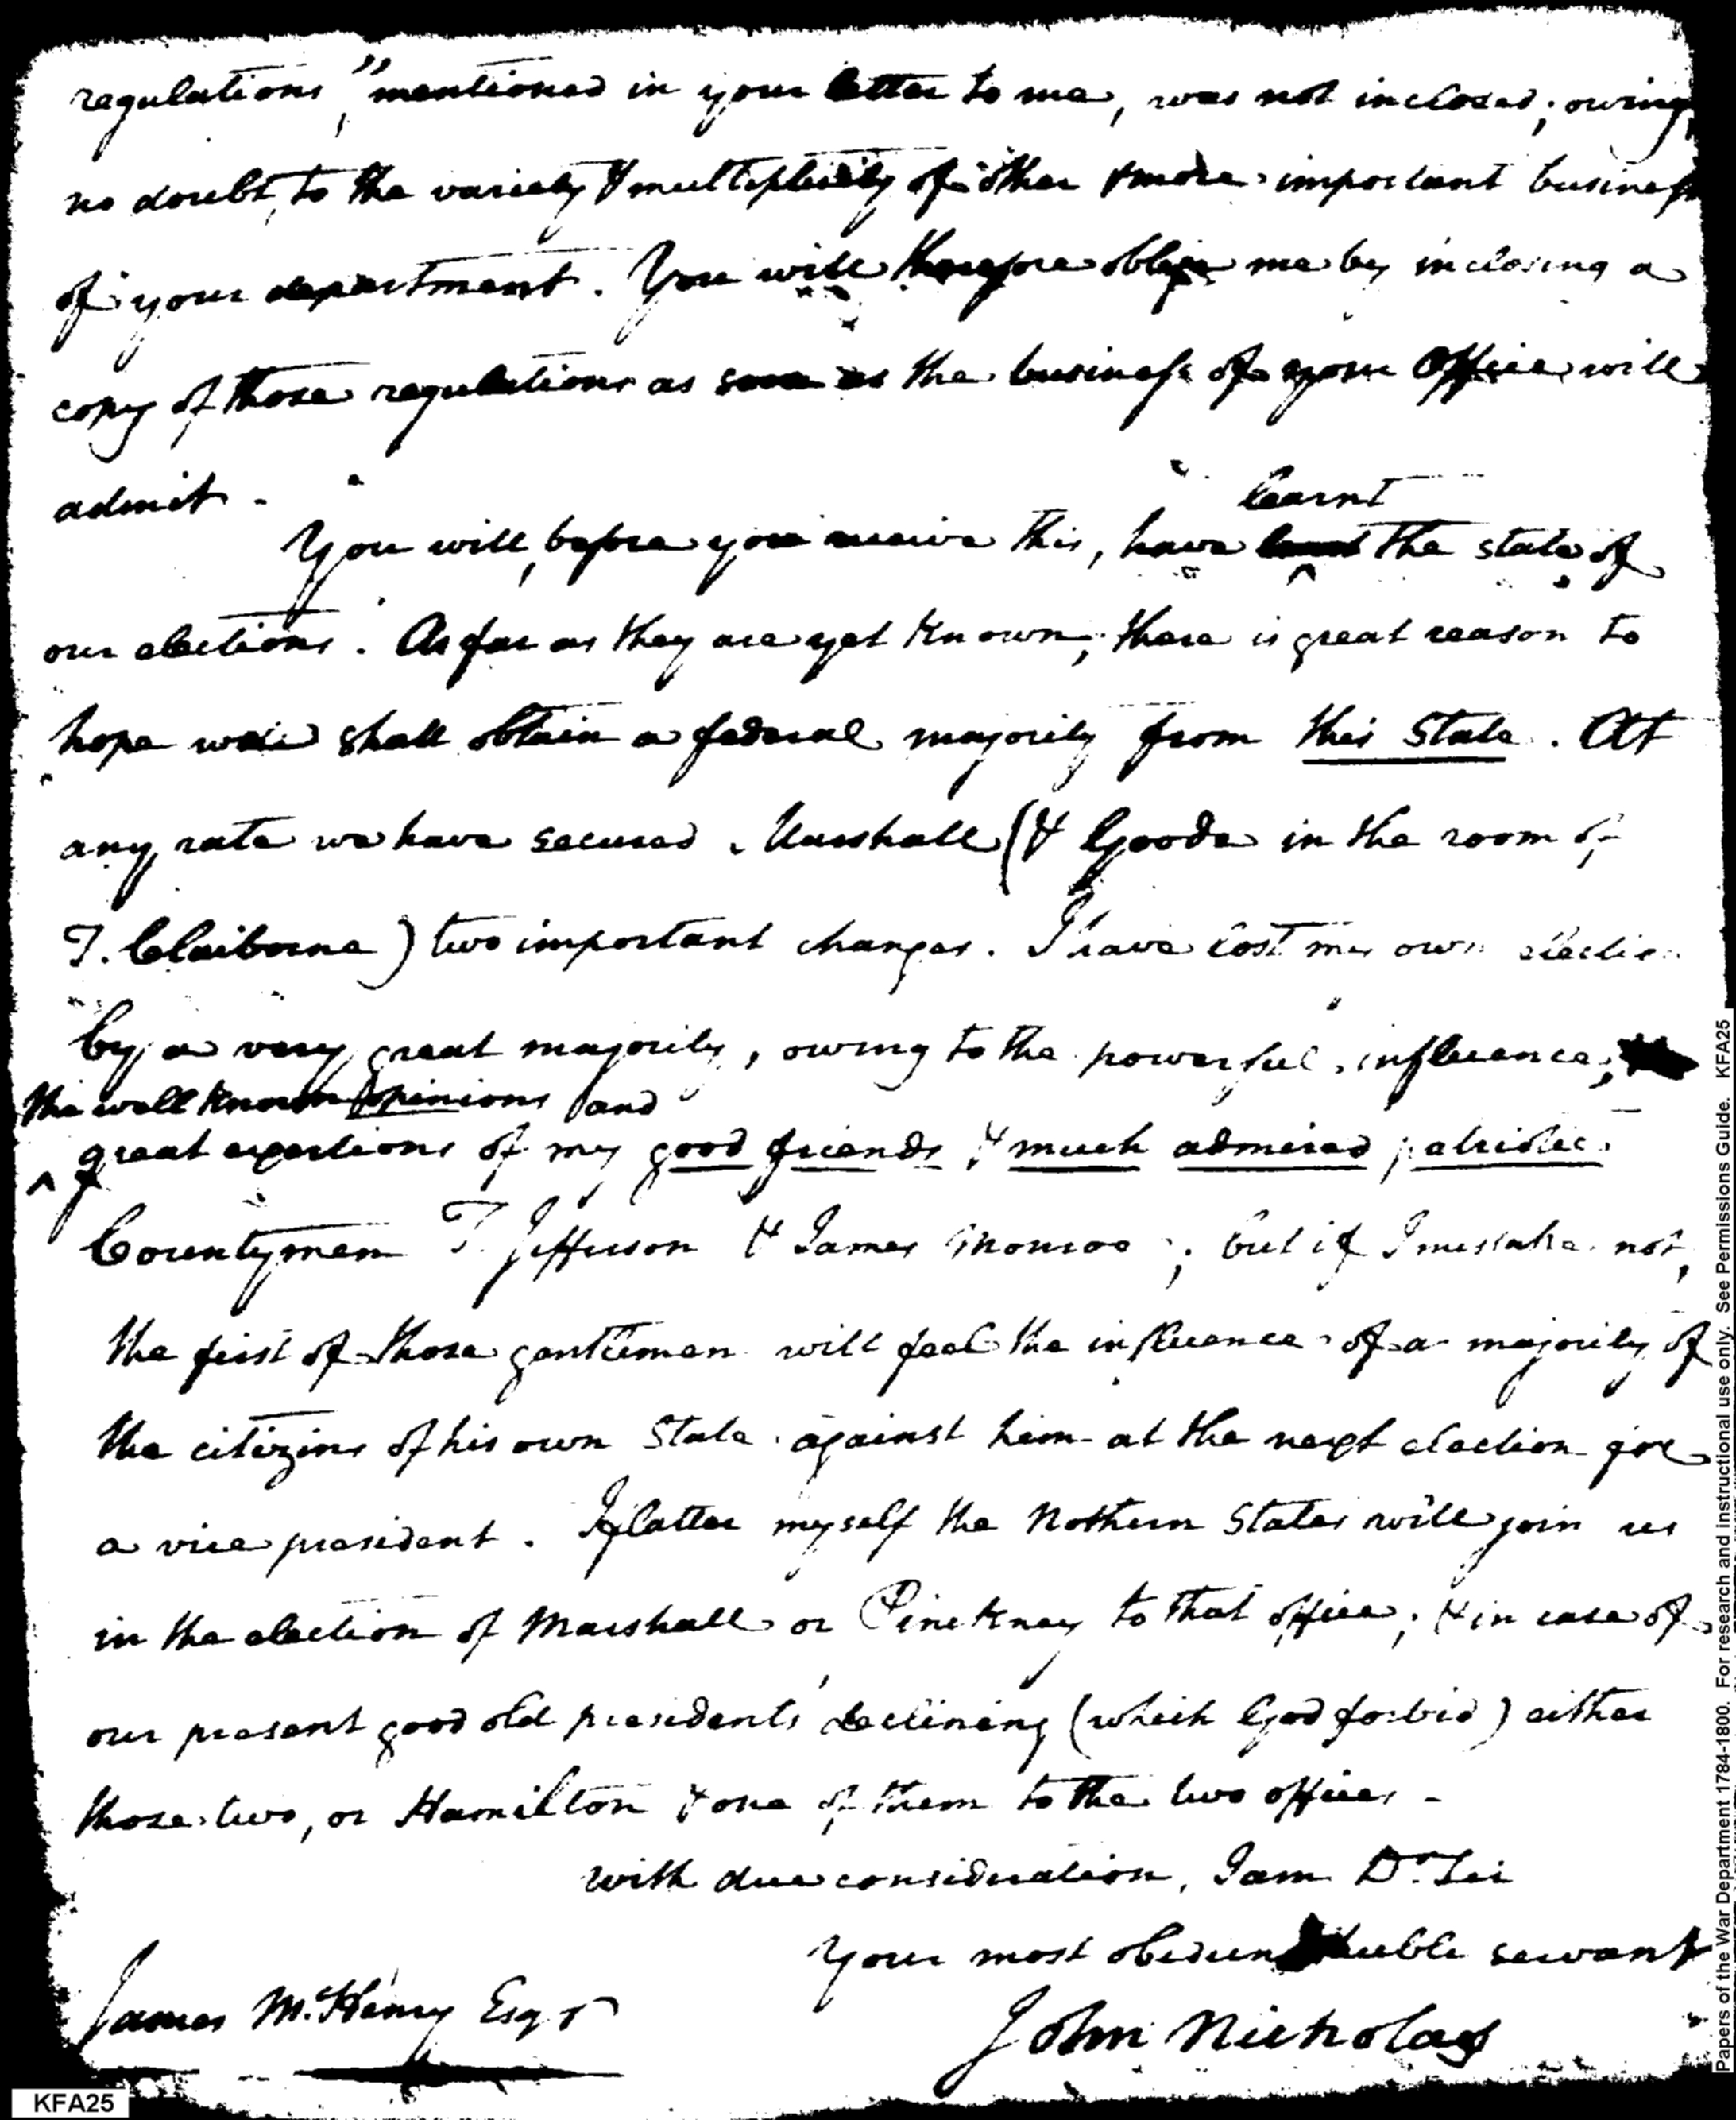 regulations," mentioned in your letter to me, was not inclosed; owing,
no doubt, to the variety & multiplicity of other & more important business
of your department. You will therefore oblige me by inclosing a
copy of those regulations as soon as the business of your Office will
admit -
learnt
You will, before you receive this, have the state of
our elections. As far as they are yet known, there is great reason to
hope we shall obtain a federal majority from this State. At
any rate we have secured Marshall (& Goode in the room of
T. Claiborne) two important changes. I have lost my own election
by a very great majority, owing to the powerful influence,
the well known opinions and
^ great exertions of my good friends & much admired patriotic
Countymen T. Jefferson & James Monroe; but if I mistake not,
the first of those gentlemen will feel the influence of a majority of
the citizins of his own State against him at the next election for
a vice president. I flatter myself the Nothern States will join us
in the election of Marshall or Pinckney to that office; & in case of
our present good old presidents' declining (which God forbid) either
those two, or Hamilton & one of them to the two offices -
with due consideration, I am Dr. Sir
Your most obedient humble servant
James McHenry Esqr
John Nicholas
KFA25
Papers of the War Department 1784-1800. For research and instructional use only. See Permissions Guide. KFA25